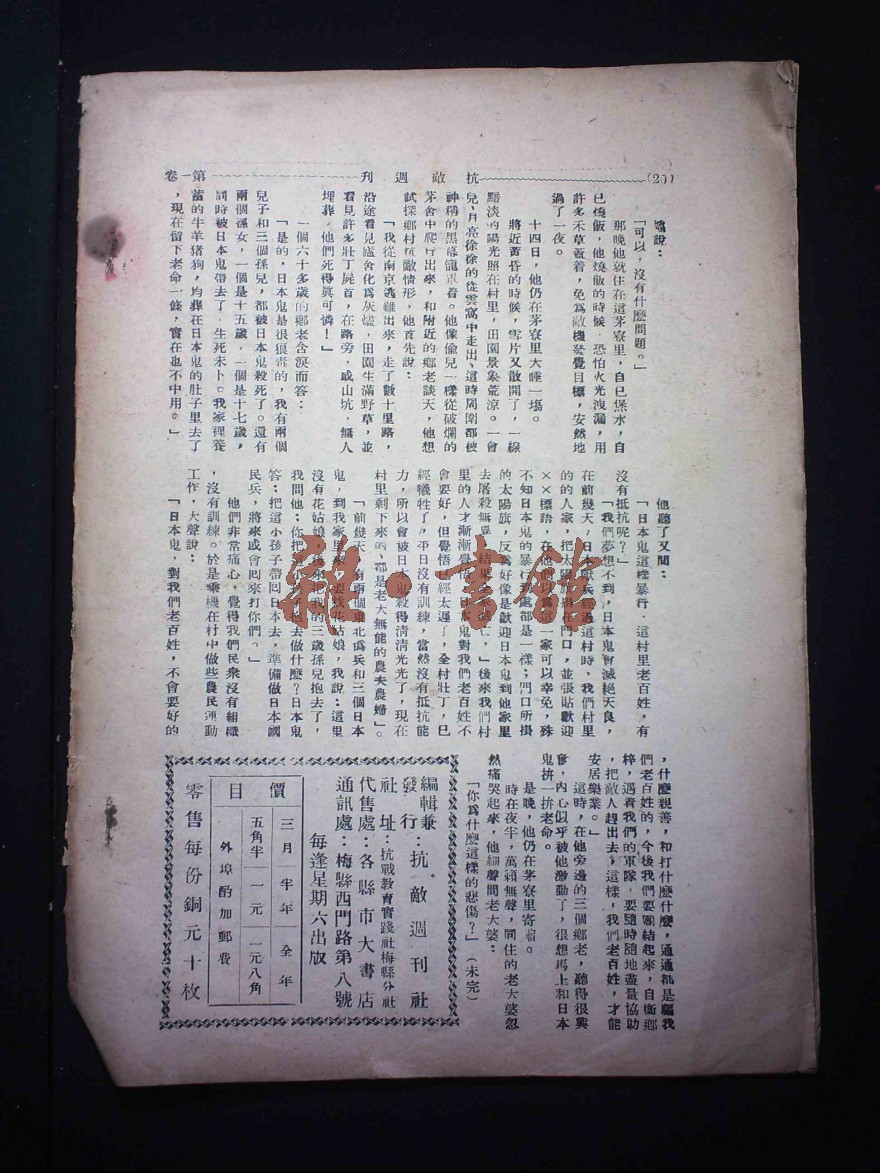 (20)
抗敵週刊
第一卷
說：
「可以，沒有什麼問題。」
那晚他就住在這茅寮里，自己煲水，自
已燒飯，他燒飯的時候，恐怕火光洩漏，用
許多禾草蓋着，免爲敵機發覺目標，安然地
過了一夜。
十四日，他仍在茅寮里大睡一塲。
將近黃昏的時候，雪片又散開了，一線
黯淡的陽光照在村里，田園景象荒涼。一會
兒，月亮徐徐的從雲窩中走出、這時周圍都被
神稱的黑幕籠罩着。他像偸兒一樣從破爛的
茅舍中爬行出來，和附近的鄕老談天，他想
試探鄕村抗敵情形，他首先說：
「我從南京逃難出來，走了數十里路，
沿途看見廬舍化爲灰燼，田園生滿野草，並
看見許多壯丁屍首，在路旁，或山坑，無人
埋葬。他們死得眞可憐！」
一個六十多歲的鄕老含淚而答：
「是的，日本鬼是很狠毒的，我有兩個
兒子和三個孫兒，都被日本鬼殺死了。還有
兩個孫女，一個是十五歲，一個是十七歲，
同時被日本鬼帶去了，生死未卜。我家裡養
蓄的牛羊猪狗，均葬在日本鬼的肚子里去了
，現在留下老命一條，實在也不中用。」
他聽了又問：
「日本鬼這樣暴行，這村里老百姓，有
沒有抵抗呢？」
「我們夢想不到，日本鬼會滅絕天良，
在前幾天，日本獸兵經過這村時，我們村里
的的人家，把太陽旗掛在門口，並張貼歡迎
××標語，在他們以爲這一家可以幸免，殊
不知日本鬼的暴行到處都是一樣；門口所掛
的太陽旗，反爲好像是歡迎日本鬼到他家里
去屠殺無異，結果全家滅亡，」後來我們村
里的人才漸漸覺悟，日本鬼對我們老百姓不
會要好，但覺悟已經太遲了，全村壯丁，已
經犧牲了，平日沒有訓練，當然沒有抵抗能
力，所以會被日本鬼殺得淸淸光光了，現在
村里剩下來的，都是老大無能的農夫農婦」。
「前幾天，有兩個東北僞兵和三個日本
鬼，到我家里來，要找花姑娘，我說：這里
沒有花姑娘，後來把我的三歲孫兒抱去了，
我問他：你把這小孩子抱去做什麼？日本鬼
答：把這小孩子帶回日本去，準備做日本國
民兵，將來或會囘來打你們。」
他們非常痛心，覺得我們民衆沒有組織
，沒有訓練。於是乘機在村中做些農民運動
工作，大聲說：
「日本鬼，對我們老百姓，不會要好的
，什麼親善，和打什麼什麼，通通都是騙我
們老百姓的，今後我們要團結起來，自衞鄕
梓，遇着我們的軍隊，要隨時隨地盡量協助
，把敵人趕出去，這樣，我們老百姓，才能
安居樂業。」
這時，在他旁邊的三個鄕老，聽得很興
奮，內心似乎被他激動了，很想馬上和日本
鬼拚一拚老命。
是晚，他仍在茅寮里寄宿。
時在夜半，萬籟無聲，同住的老大婆忽
然痛哭起來，他細聲問老大婆：
「你爲什麼這樣的悲傷？」（未完）
編輯兼發行：抗敵週刊社
社址：抗戰教育實踐社梅縣分社
代售處：各縣市大書店
通訊處：梅縣西門路第八號
每逢星期六出版
價目
三月 半年 全年
五角半 一元 一元八角
外埠酌加郵費
零售每份銅元十枚